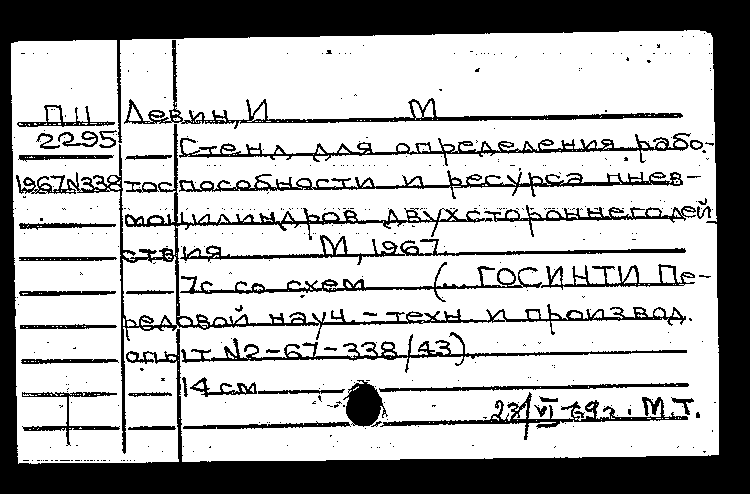 П II Левин, И М
2295 Стенд для определения рабо-
1967N338 тоспособности и ресурса пнев-
моцилиндров двухстороннего дей
ствия. М, 1967.
7с со схем (... ГОСИНТИ Пе-
редовой науч. - техн. и производ.
опыт N2-67-338/43).
14 см
23/VI-69г. М.Т.